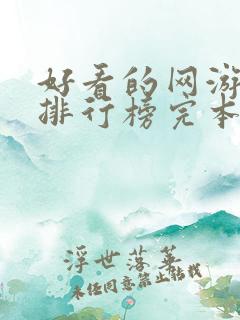 好看的网游
排行榜完本
浮世落华
未经同意禁止转载